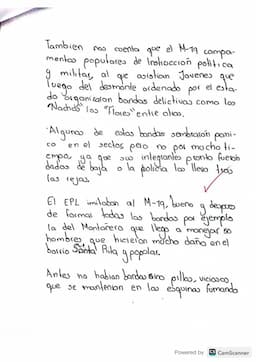 Tambien nos cuenta que el M-19 campa-
mentos populares de Instrucción política
y militar, al que asistian Jovenes que
luego del desmonte ordenado por el esta-
do organizaron bandas delictivas como los
"Nachos" los "Flores" entre otros.
Algunas de estas bandas sembraron pani-
co en el sector pero no por mucho ti-
empo, ya que sus integrantes pronto fueron
dados de baja o la policia los llevo tras
las rejas.
El EPL imitaban al M-19, bueno y despues
de formar todas las bandas por ejemplo
la del Montañero que llego a manejar 80
hombres que hicieron mucho daño en el
barrio Santa Rita y popular.
Antes no habian bandas sino pillos, viciosos
que se mantenian en las esquinas fumando
Powered by CS CamScanner